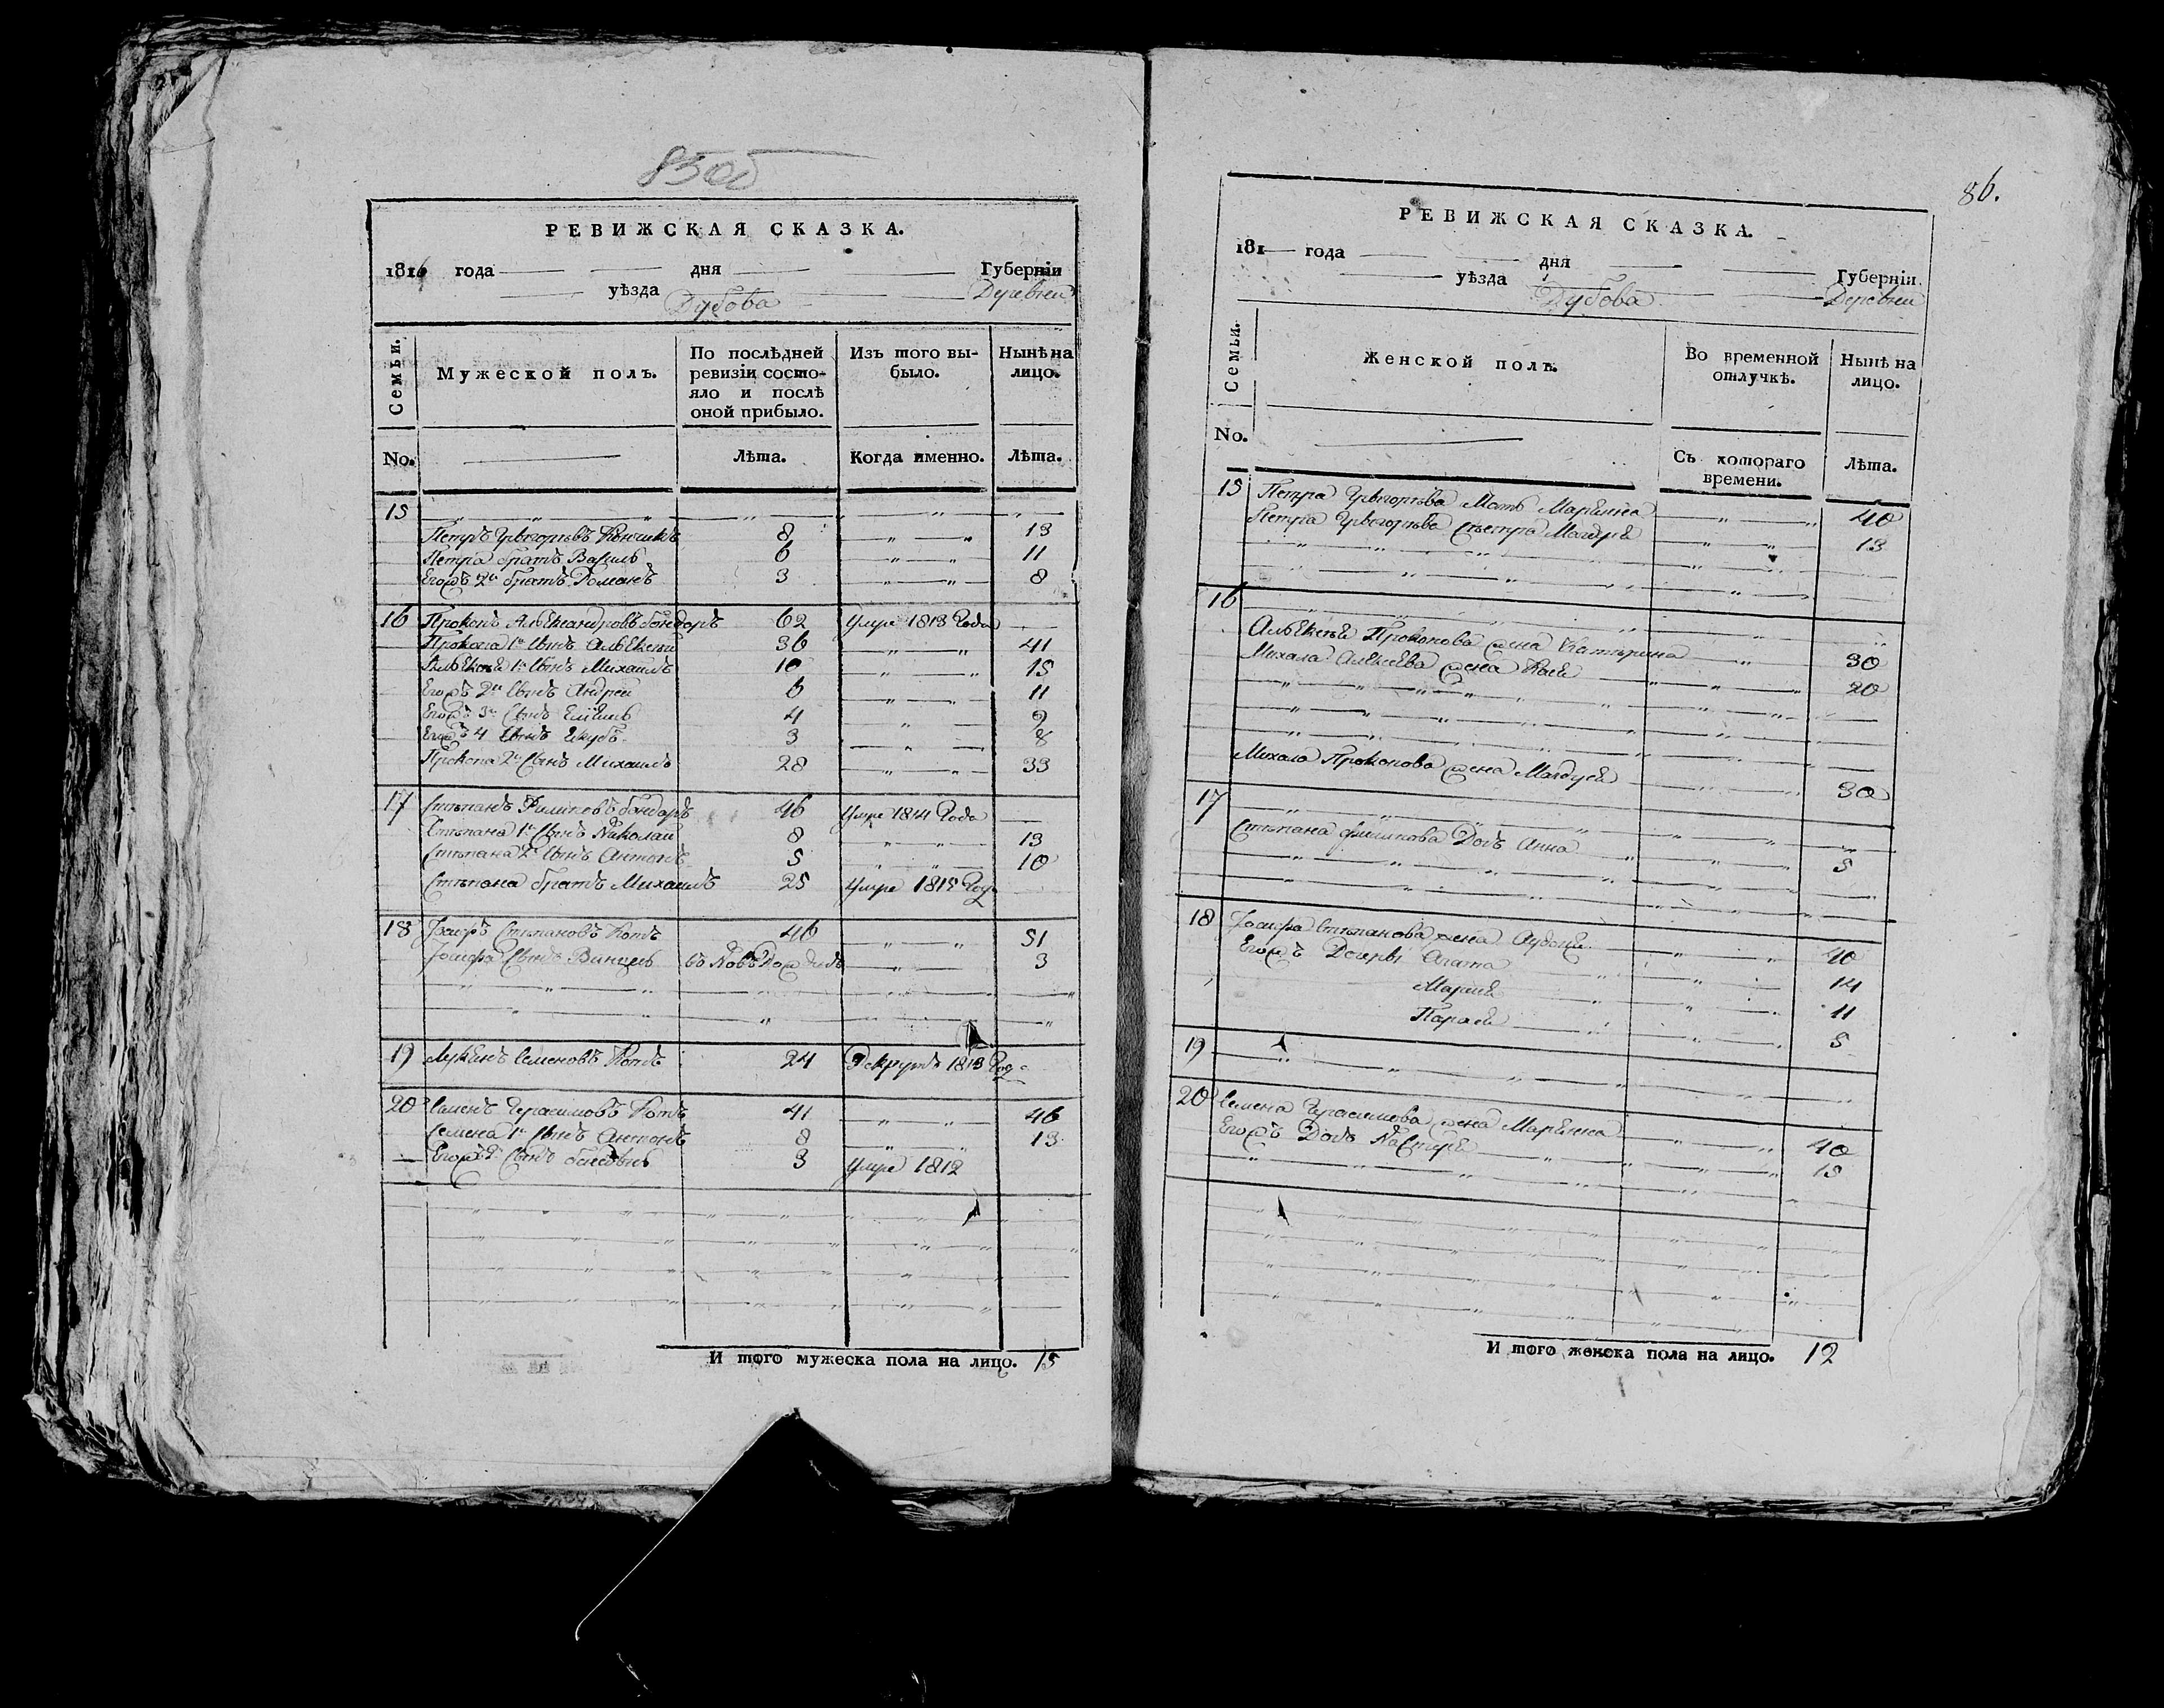 85 об
РЕВИЖСКАЯ СКАЗКА.
1816 года дня Губерніи
уѣзда Дубова Деревни
Семьи. Мужеской полъ. По послѣдней ревизіи состояло и послѣ оной прибыло. Изъ того выбыло. Нынѣ на лицо.
No. Лѣта. Когда именно. Лѣта.
15
Петръ Григорьевъ 8 13
Петра братъ Василь 6 11
Егожъ 2й братъ Романъ 3 8
16 Прокопъ Алѣксандровъ бондаръ 62 Умре 1813 Года
Прокопа 1й Сынъ Алѣксѣй 36 41
Алѣксѣя 1й Сынъ Михаилъ 10 15
Егожъ 2й Сынъ Андрей 6 11
Егожъ 3й Сынъ 4 9
Егожъ 4 Сынъ Якубъ 3 8
Прокопа 2й Сынъ Михаилъ 28 33
17 Стѣпанъ Филиповъ бондаръ 46 Умре 1814 Года
Стѣпана 1й Сынъ Николай 8 13
Стѣпана 2й Сынъ Антонъ 5 10
Стѣпана братъ Михаилъ 25 Умре 1815 Году
18 Іосифъ Стѣпановъ Котъ 46 51
Іосифа Сынъ Винцесь въ Новѣ Рожденъ 3
19 Лукянъ Семеновъ Котъ 24 Рекрутъ 1813 Год
20 Семенъ Герасимовъ Котъ 41 46
Семена 1й Сынъ Антонъ 8 13
Егожъ 2й Сынъ 3 умре 1812
И того мужеска пола на лицо. 15
86.
РЕВИЖСКАЯ СКАЗКА.
181 года дня Губерніи
уѣзда Дубова Деревни
Семьи. Женской полъ. Во временной отлучкѣ. Нынѣ на лицо.
No. Съ котораго времени. Лѣта.
15 Петра Григорьева Мать Марьяна 40
Петра Григорьева Сѣстра 13
16
Алѣксѣя Прокопова жена Катѣрина 30
Михала Алѣксѣева жена 20
Михала Прокопова жена 30
17
Стѣпана Филипова Дочь Анна 5
18 Іосифа Стѣпанова жена 40
Егожъ Дочери Агата 14
Марія 11
Парася 5
19
20 Семена Герасимова жена Марьяна 40
Егожъ Дочь Настуся 15
И того женска пола на лицо. 12